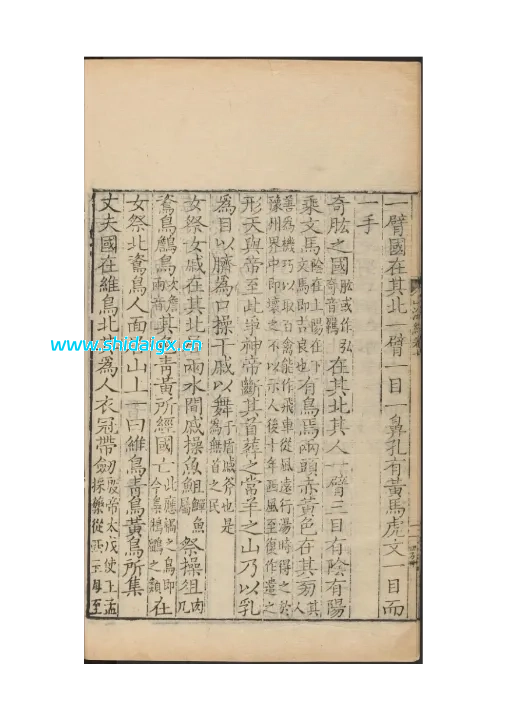 一臂國在其北一臂一目一鼻孔有黃馬虎文一目而
一手
奇肱之國肱或作弘奇音羈在其北其人一臂三目有陰有陽
乘文馬陰在上陽在下文馬即吉良也有鳥焉兩頭赤黃色在其旁其人
善為機巧以取百禽能作飛車從風遠行湯時得之於
豫州界中即壞之不以示人後十年西風至復作遣之
形天與帝至此爭神帝斷其首葬之常羊之山乃以乳
為目以臍為口操干戚以舞干盾戚斧也是為無首之民
女祭女戚在其北居兩水間戚操魚䱉鱓魚屬祭操俎肉几
鳥
其色青黃所經國亡此應禍之鳥即今梟鵂鶹之類在
女祭北
鳥人面居山上一曰維鳥青鳥黃鳥所集
丈夫國在維鳥北其為人衣冠帶劒殷帝太戊使王孟採藥從西王母至
www.shidalgx.cn